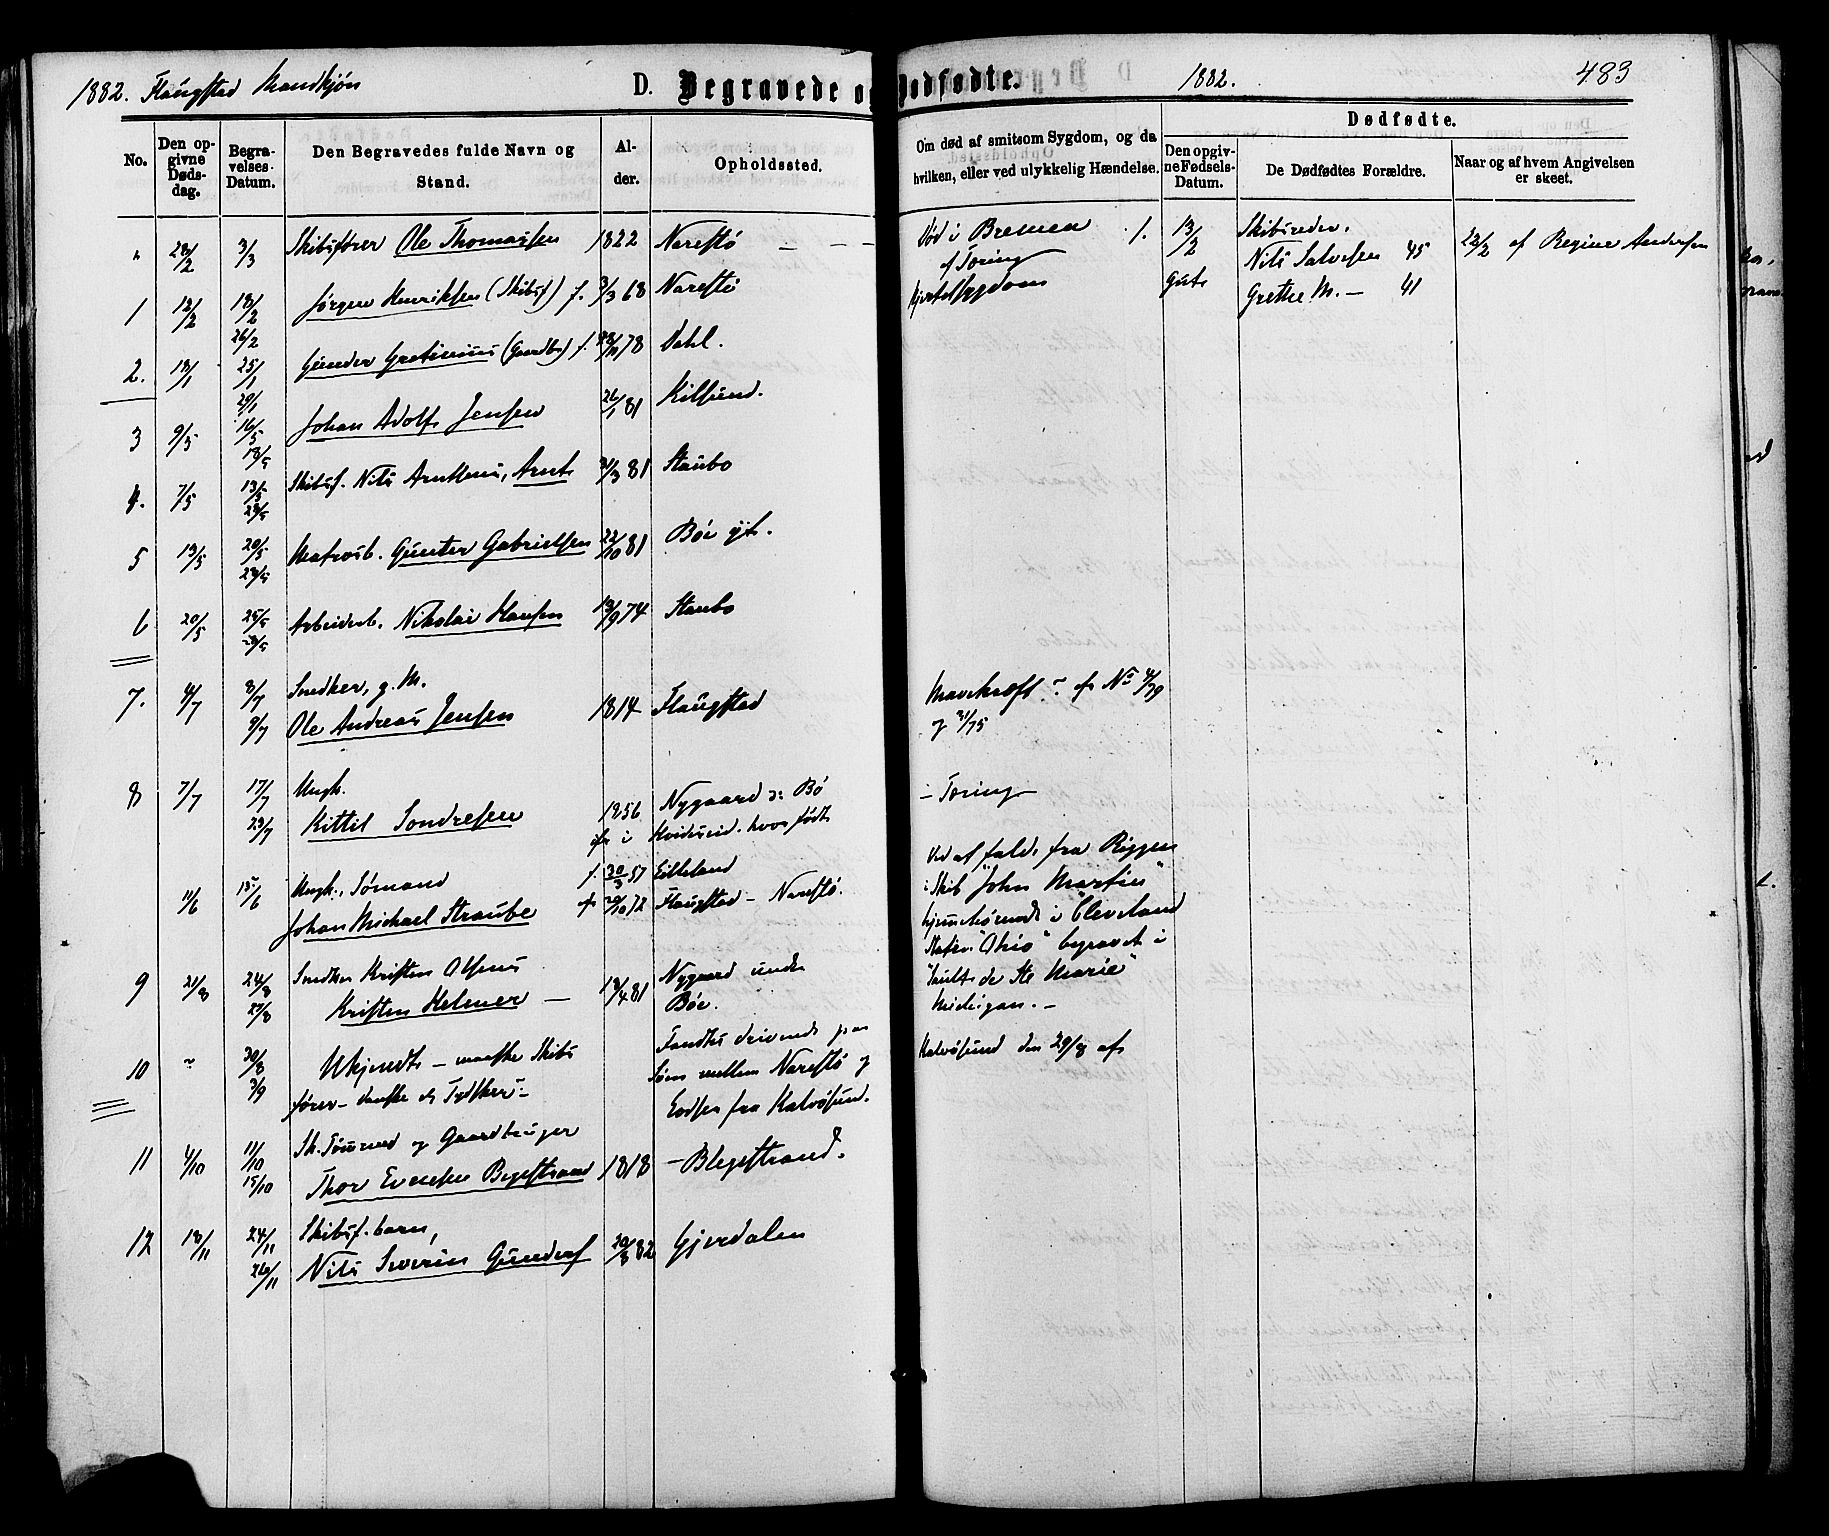 1882. Flaugstad Mandkjøn
D. Begravede og Dødfødte.
1882.
483
No.
Den opgivne Dødsdag.
Begravelses-Datum.
Den Begravedes fulde Navn og Stand.
Alder.
Opholdssted.
Om død af smitsom Sygdom, og da hvilken, eller ved ulykkelig Hændelse.
Dødfødte.
Den opgivne Fødsels-Datum.
De Dødfødtes Forældre.
Naar og af hvem Angivelsen er skeet.
" 28/2 3/3 Skibsfører Ole Thomassen 1822 Narestø — — —
Død i Bremen
af Tæring
1. 13/2 Skibsreder
Nils Salvesen 45
Gut Grethe M. — 41
22/2 af Regine Andersen
1 12/2 18/2 26/2 Jørgen Henriksen (Skibsf) f. 3/3 68 Narestø
Hjertesygdom
2. 18/1 25/1 29/1 Gunder Gretinius (Gaardbr) f. /11 78 Dahl.
3 9/5 16/5 18/5 Johan Adolf Jensen 26/1 81 Kilsund.
4. 7/5 13/5 23/5 Skibsf. Nils Arntsens, Arnt 31/3 81 Staubo
5 13/5 20/5 23/5 Matrosb. Gunter Gabrielsen 22/10 81 Bøe yt.
6 20/5 25/5 29/5 Arbeiderb. Nikolai Hansen 13/9 74 Staubo
7. 4/7 8/7 9/7 Snedker, g. M.
Ole Andreas Jensen 1814 Flaugstad
Mavekræft
og 31/75
8 7/7 17/7 23/7 Ungk.
Kittil Sondresen 1856 Nygaard Bø
i Hvideseid. hvor født
— Tæring
11/6 15/6 Ungk., Sømand f. 30/3 57 Eikeland
Johan Michael Straube 20/10 72 Flaugstad — Narestø.
Ved at falde fra Riggen
i Skib "John Martin"
hjemmehørende i Cleveland
Staten "Ohio" begravet i
"Sault de Ste Marie"
Michigan. —
9 21/8 24/8 27/8 Snedker Kristen Olsens
Kristen Helmer — 18/4 81 Nygaard under
Bøe.
10 " 30/8 3/9 Ukjendt — maaske Skibs
fører — danske el. Tydsker —
Fandtes drivende paa
Søen mellem Narestø og
fra Kalvøsund.
Kalvøsund den 29/8 af
11 4/10 11/10 15/10 Sk. Tømmermd og Gaardbruger
Thor Evensen Blegestrand 1818 — Blegestrand.
12 18/11 24/11 26/11 Skibsf. barn,
Nils Severin Gunders 20/3 82 Gjerdalen